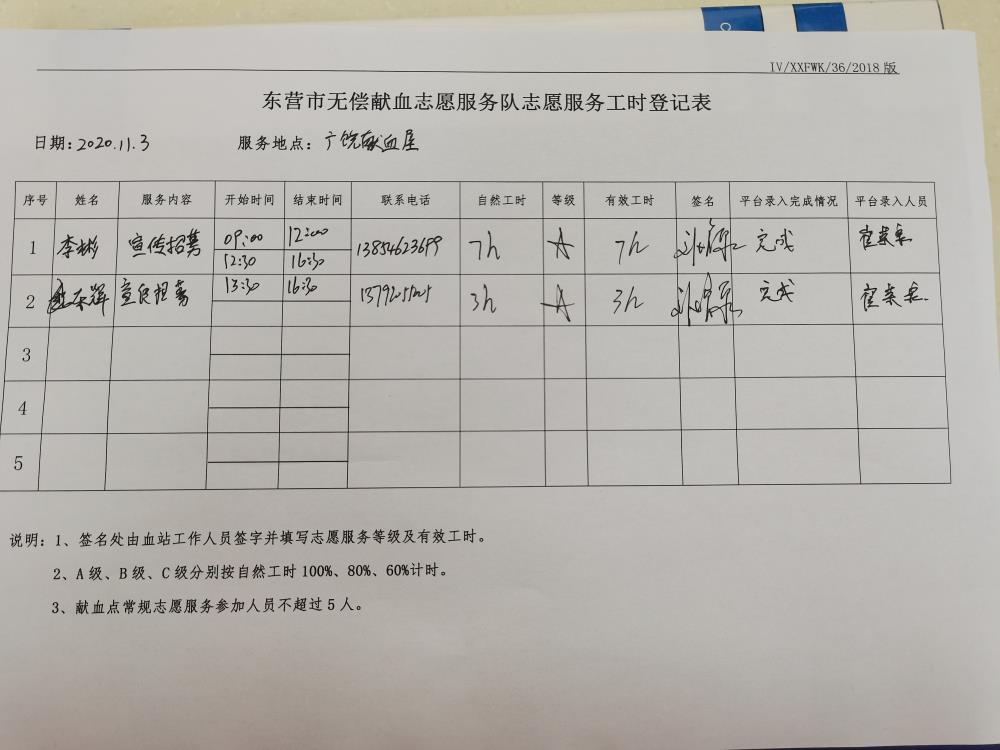 IV/XXFWK/36/2018 版
东营市无偿献血志愿服务队志愿服务工时登记表
日期：2020.11.3 服务地点：广饶献血屋
序号 姓名 服务内容 开始时间 结束时间 联系电话 自然工时 等级 有效工时 签名 平台录入完成情况 平台录入人员
1 李彬 宣传招募 09:00 12:00 13854623699 7h A 7h 完成
12:30 16:30
2 宣传招募 13:30 16:30 3h A 3h 完成
3
4
5
说明：1、签名处由血站工作人员签字并填写志愿服务等级及有效工时。
2、A 级、B 级、C 级分别按自然工时 100%、80%、60%计时。
3、献血点常规志愿服务参加人员不超过 5 人。